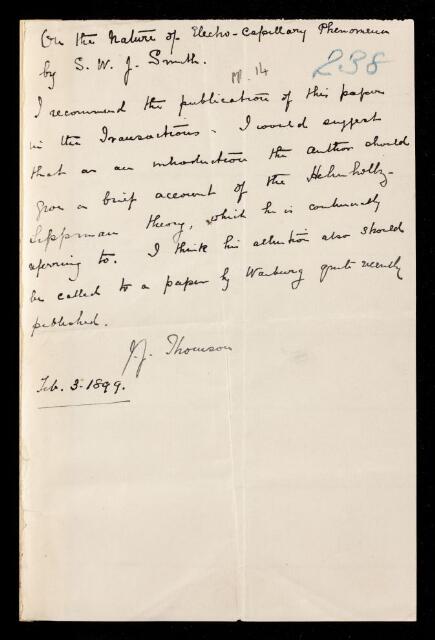 On the Nature of Electro-Capillary Phenomena
by S. W. J. Smith.
pp. 14
238
I recommend the publication of this paper
in the Transactions. I would suggest
that as an introduction the author should
give a brief account of the Helmholtz-
Lippman theory, which he is continually
referring to. I think his attention also should
be called to a paper by Warburg quite recently
published.
J. J. Thomson
Feb. 3. 1899.